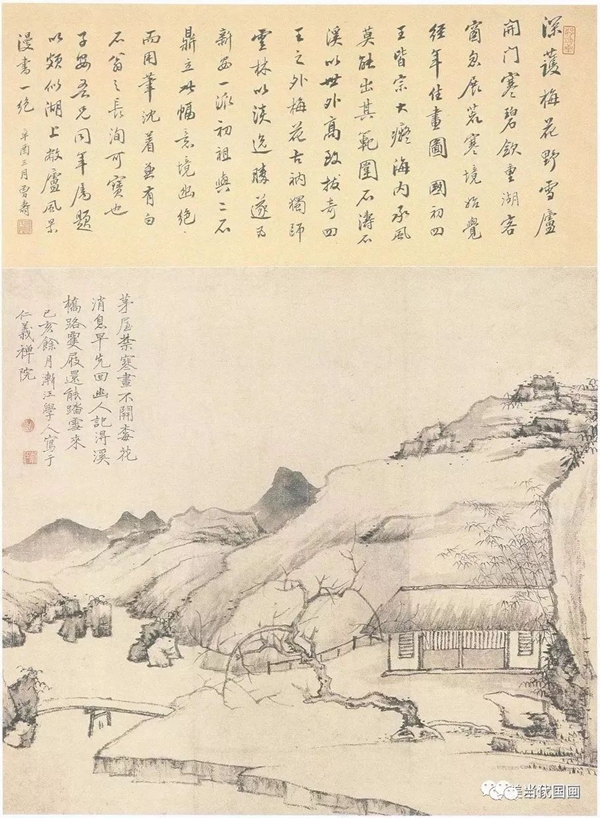 深護梅花野雪廬
開門寒碧飲重湖客
窗忽展荒寒境始覺
經年住畫圖 國初四
王皆宗大癡海内承風
莫能出其範圍石濤石
溪以世外高致拔奇四
王之外梅花古衲獨師
雲林以淡逸勝遂爲
新安一派初祖與二石
鼎立此幅意境幽絶
而用筆沈着兼有白
石翁之長洵可寶也
子安吾兄同年屬題
以頗似湖上敝廬風景
漫書一絶 辛酉三月曾壽
茅屋禁寒晝不開梅花
消息早先回幽人記得溪
橋路雙屐還能踏雪來
己亥餘月漸江學人寫于
仁義禪院
当代国画